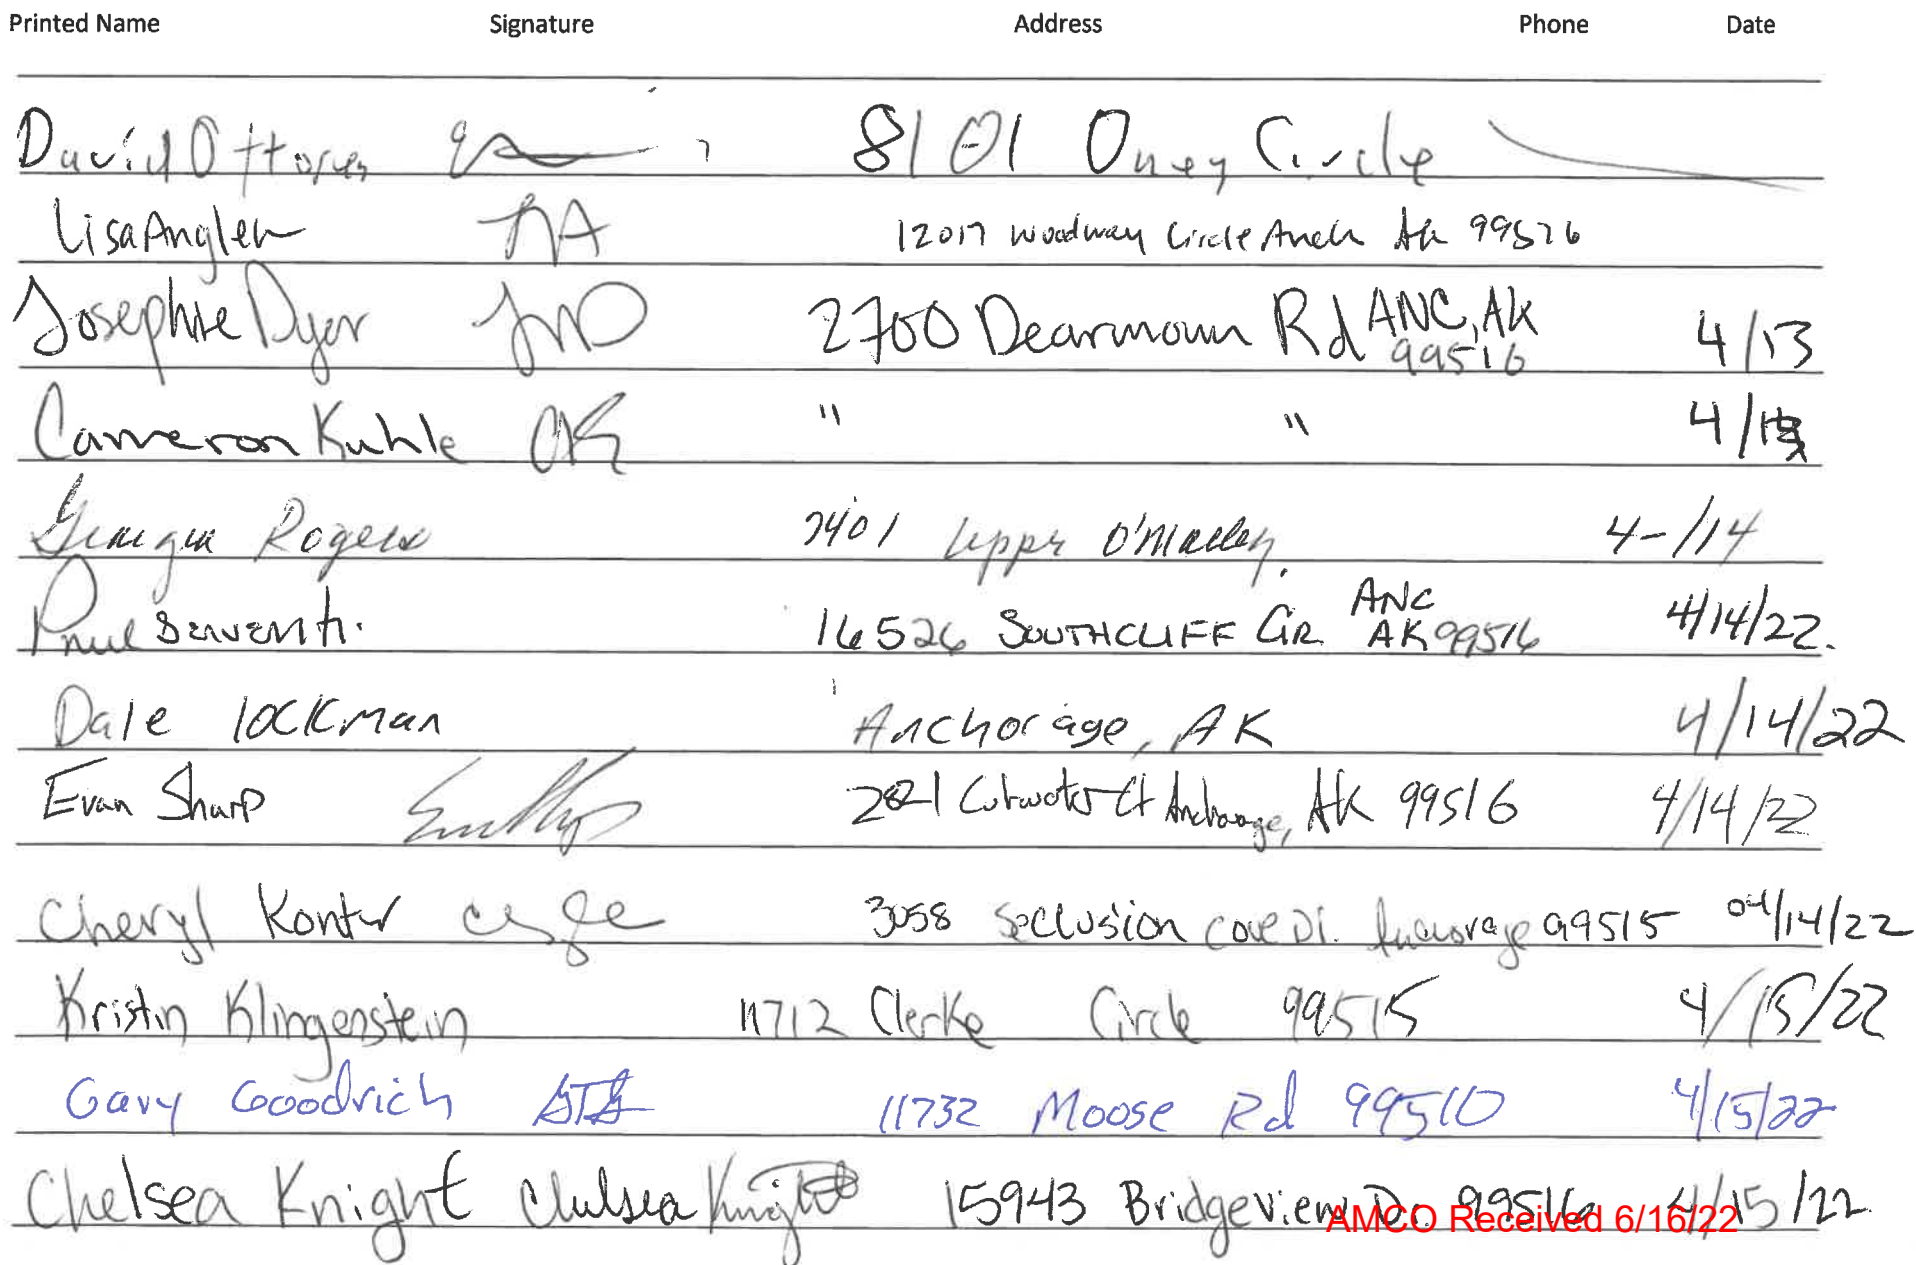 Printed Name Signature Address Phone Date
David 8101 Oney Circle
Lisa Anglen 12017 Woodway Circle Anch Ak 99516
Josephine Dyer JMD 2700 Dearmoun Rd ANC, AK 99516 4/13
Cameron Kuhle CK " " 4/13
Georgia Rogers 7401 Upper O'Malley 4-/14
Paul Serventi 16526 SOUTHCLIFF CIR ANC AK 99516 4/14/22.
Dale lockman Anchorage, AK 4/14/22
Evan Sharp 2821 Cutwater Ct Anchorage, AK 99516 4/14/22
Cheryl Konter 3058 Seclusion Cove Dr. Anchorage 99515 04/14/22
Kristin Klingenstein 11712 Clerke Circle 99515 4/15/22
Gary Goodrich GTG 11732 Moose Rd 99510 4/15/22
Chelsea Knight Chelsea Knight 15943 Bridgeview Dr. 99516 4/15/22
AMCO Received 6/16/22